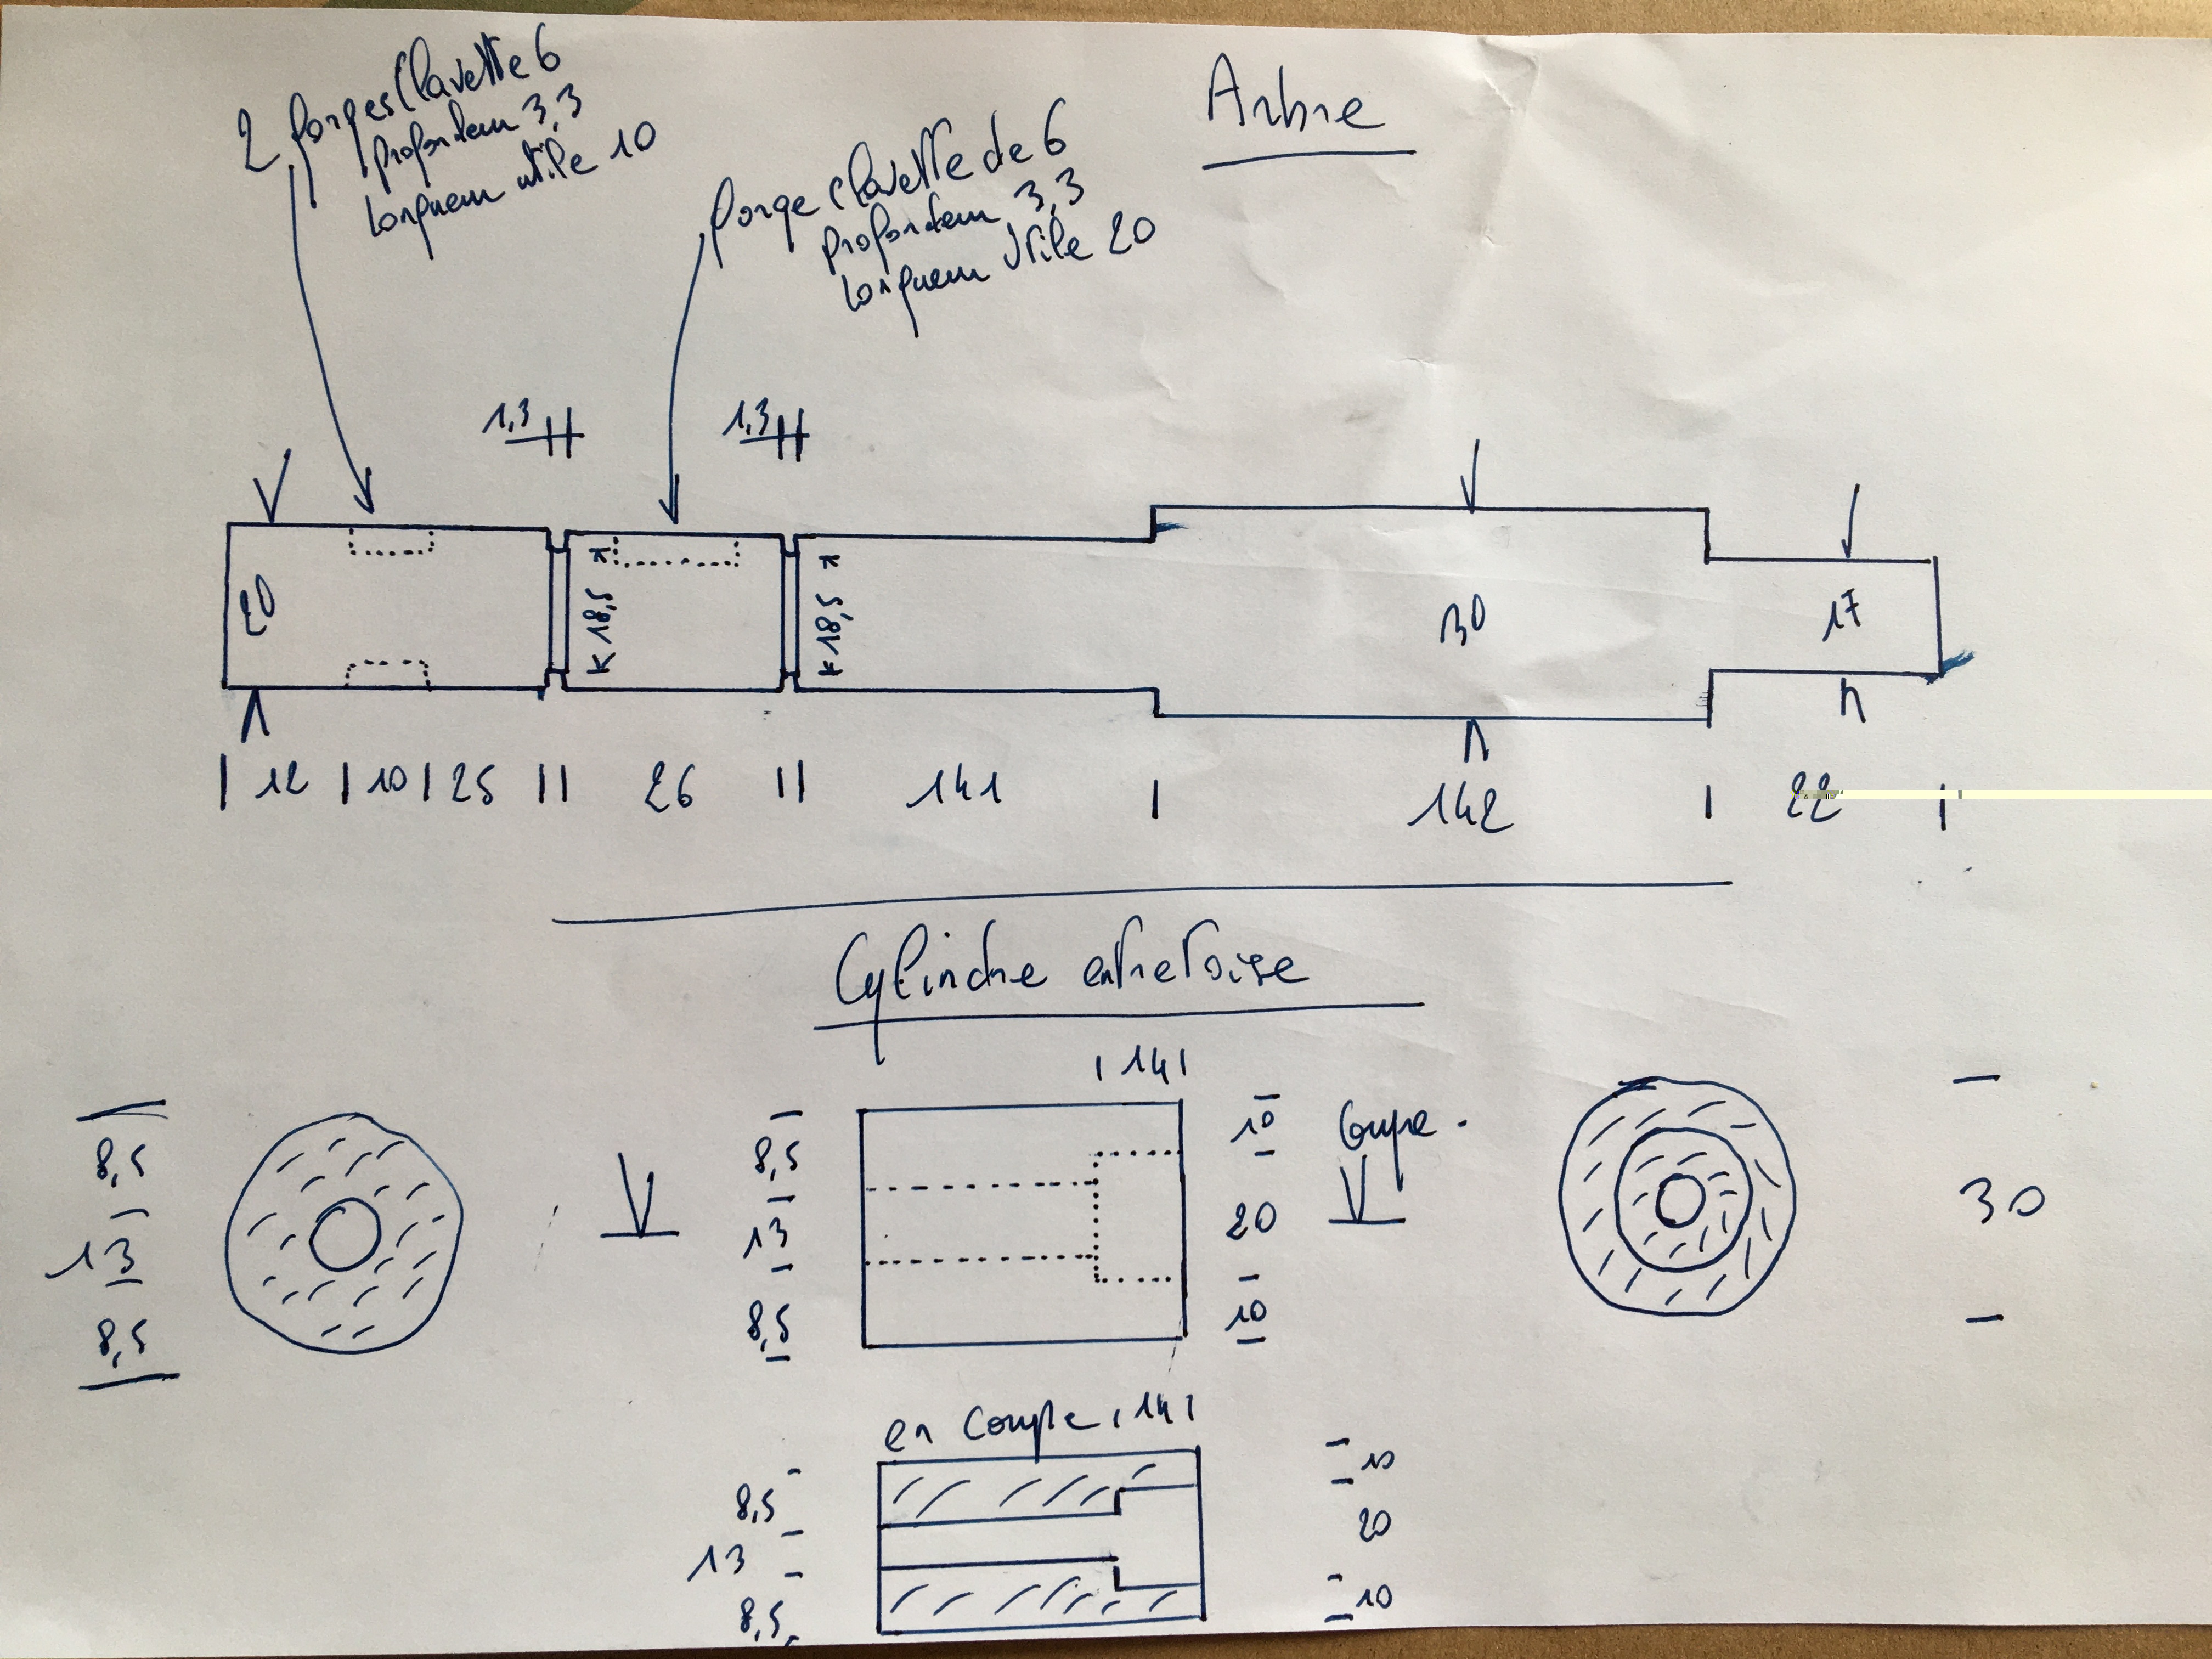 Arbre
2 gorges Clavette 6
profondeur 3,3
longueur utile 10
gorge clavette de 6
profondeur 3,3
longueur Utile 20
1,3
1,3
20
18,5
18,5
30
17
12 10 25 26 141 142 22
Cylindre entretoise
14
8,5
13
8,5
8,5
13
8,5
10
20
10
Coupe.
30
en coupe 14
8,5
13
8,5
10
20
10